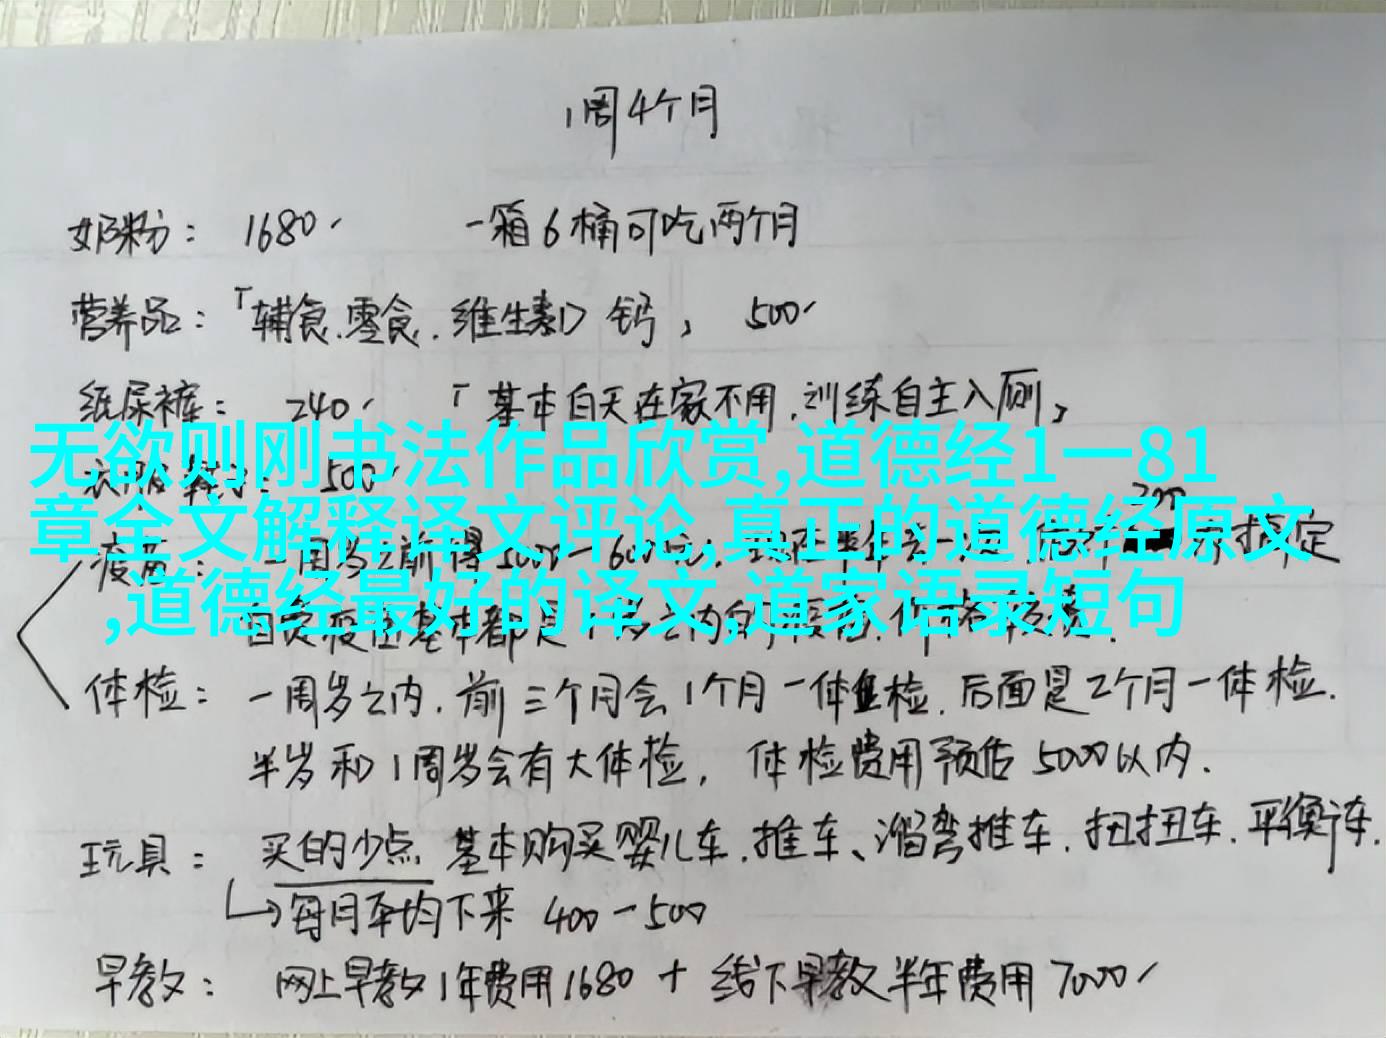 1周4个月
奶粉： 1680. 一箱6桶可吃两个月
营养品：「辅食.零食.维生素D 钙， 500
纸尿裤： 240 「基本白天在家不用.训练自主入厕，
500
无欲则刚书法作品欣赏,道德经1一81
章全文解释译文评论,真正的道德经原文
,道德经最好的译文,道家语录短句
体检： 一周岁之内.前三个月会1个月一体检.后面是2个月一体检.
半岁和1周岁会有大体检， 体检费用预估5000以内.
玩具： 买的少点 基本购买婴儿车.推车、溜弯推车.扭扭车.平衡车.
每月平均下来 400-500
早教： 网上早教1年费用1680 + 线下早教半年费用7000